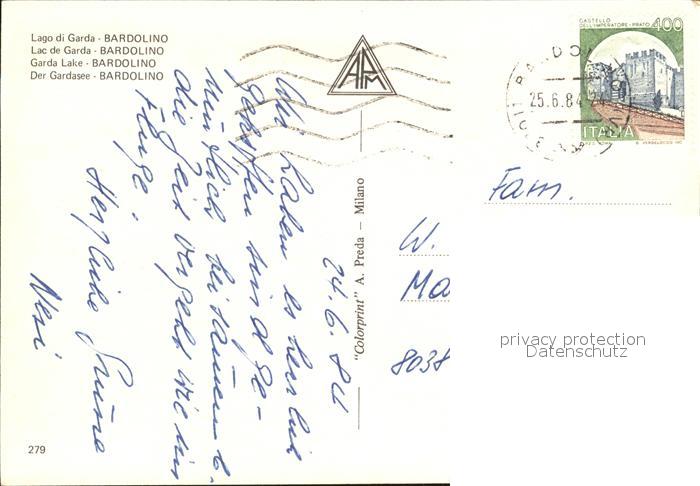 Lago di Garda - BARDOLINO
Lac de Garda - BARDOLINO
Garda Lake - BARDOLINO
Der Gardasee - BARDOLINO
APM
CASTELLO
DELL'IMPERATORE - PRATO 400
ITALIA
25.6.84
24.6.84
Wir haben es herrlich
getroffen
die Zeit vergeht wie im
Fluge!
Herzliche Grüße
"Colorprint" A. Preda — Milano
Fam.
W.
Ma
8038
279
privacy protection
Datenschutz